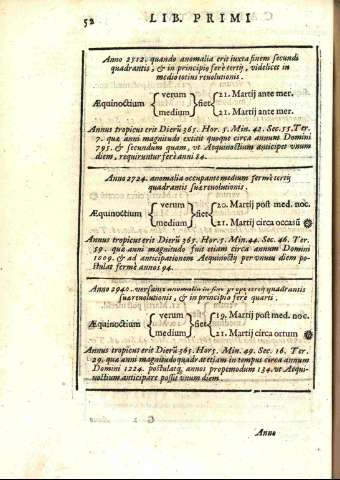 52 LIB. PRIMI
Anno 2512. quando anomalia erit iuxta finem secundi
quadrantis, & in principio ferè tertij, videlicet in
medio totius reuolutionis.
Æquinoctium { verum } fiet { 21. Martij ante mer.
{ medium } { 21. Martij ante mer.
Annus tropicus erit Dierũ 365. Hor. 5. Min. 42. Sec. 55. Ter.
7. quæ anni magnitudo extitit quoque circa annum Domini
795. & secundum quam, vt Æquinoctium anticipet vnum
diem, requiruntur ferè anni 84.
Anno 2724. anomalia occupante medium fermè tertij
quadrantis suæ reuolutionis.
Æquinoctium { verum } fiet { 20. Martij post med. noc.
{ medium } { 21. Martij circa occasũ
Annus tropicus erit Dierum 365. Hor. 5. Min. 44. Sec. 46. Ter.
39. quæ anni magnitudo fuit etiam circa annum Domini
1009. & ad anticipationem Æquinoctij per vnum diem po-
stulat fermè annos 94.
Anno 2940. versante anomalia in fine propè tertij quadrantis
suæ reuolutionis, & in principio ferè quarti.
Æquinoctium { verum } fiet { 19. Martij post med. noc.
{ medium } { 21. Martij circa ortum
Annus tropicus erit Dierum 365. Hor 5. Min. 49. Sec. 16. Ter.
29. quæ anni magnitudo quadrat etiam in tempus circa annum
Domini 1224. postulatq; annos propemodum 134. vt Æqui-
noctium anticipare possit vnum diem.
Anno